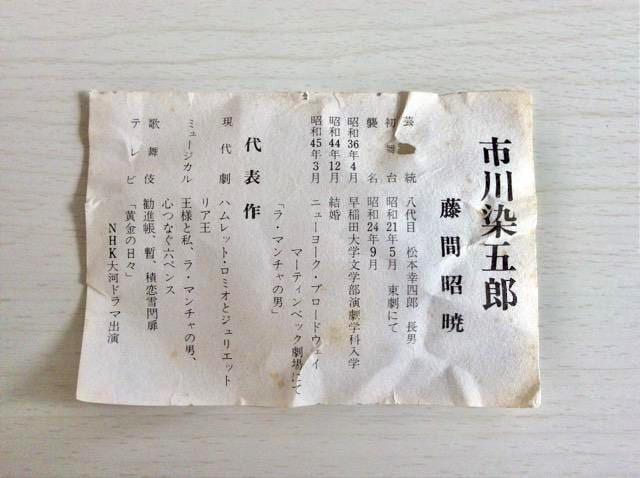 市川染五郎
藤間昭暁
芸統 八代目 松本幸四郎 長男
初舞台 昭和21年5月 東劇にて
襲名 昭和24年9月
昭和36年4月 早稲田大学文学部演劇学科入学
昭和44年12月 結婚
昭和45年3月 ニューヨーク・ブロードウェイ
マーティンベック劇場にて
「ラ・マンチャの男」
代表作
現代劇 ハムレット・ロミオとジュリエット
リア王
ミュージカル 王様と私、ラ・マンチャの男、
心つなぐ六ペンス
歌舞伎 勧進帳、暫、積恋雪関扉
テレビ 「黄金の日々」
NHK大河ドラマ出演